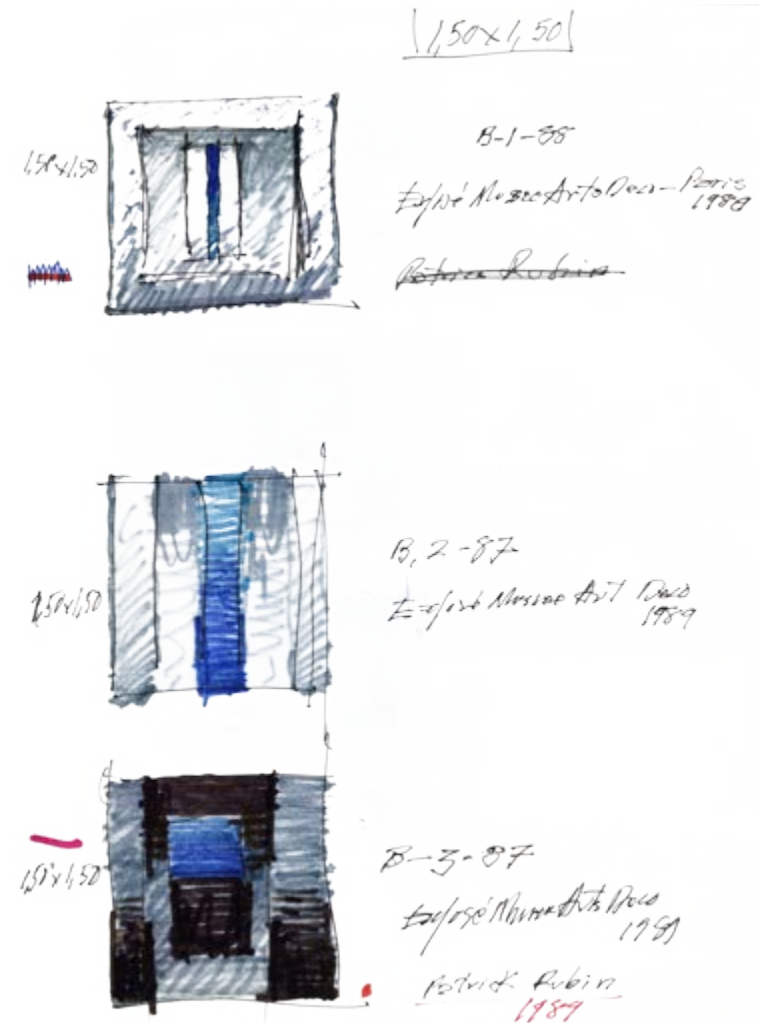 1,50x1,50
1,50x1,50
B-1-88
Exposé Musée Arts Deco - Paris
1988
Patrick Rubin
1,50x1,50
B, 2 - 87
Exposé Musée Art Deco
1989
1,50x1,50
B - 3 - 87
Exposé Musée Arts Deco
1989
Patrick Rubin
1989